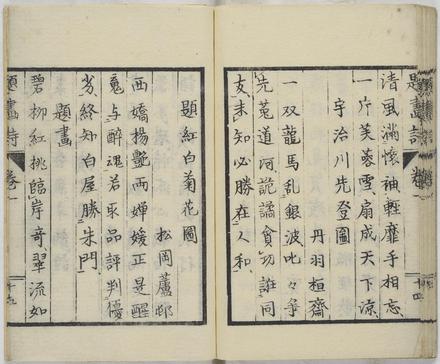 題畫詩 卷一
十四
清風滿懷袖軽靡手相忘
一片芙蓉雪扇成天下涼
宇治川先登圖
丹羽桓齋
一双龍馬乱銀波叱々争
先菟道河詭譎貪功誰同
友未知必勝在人和
題紅白菊花圖
松岡蘆邨
西嬌楊艷両嬋媛正是醒
魂与酔魂若求品評判優
劣終知白屋勝朱門
題畫
碧柳紅桃臨岸奇翠流如
題畫詩 卷一
十五